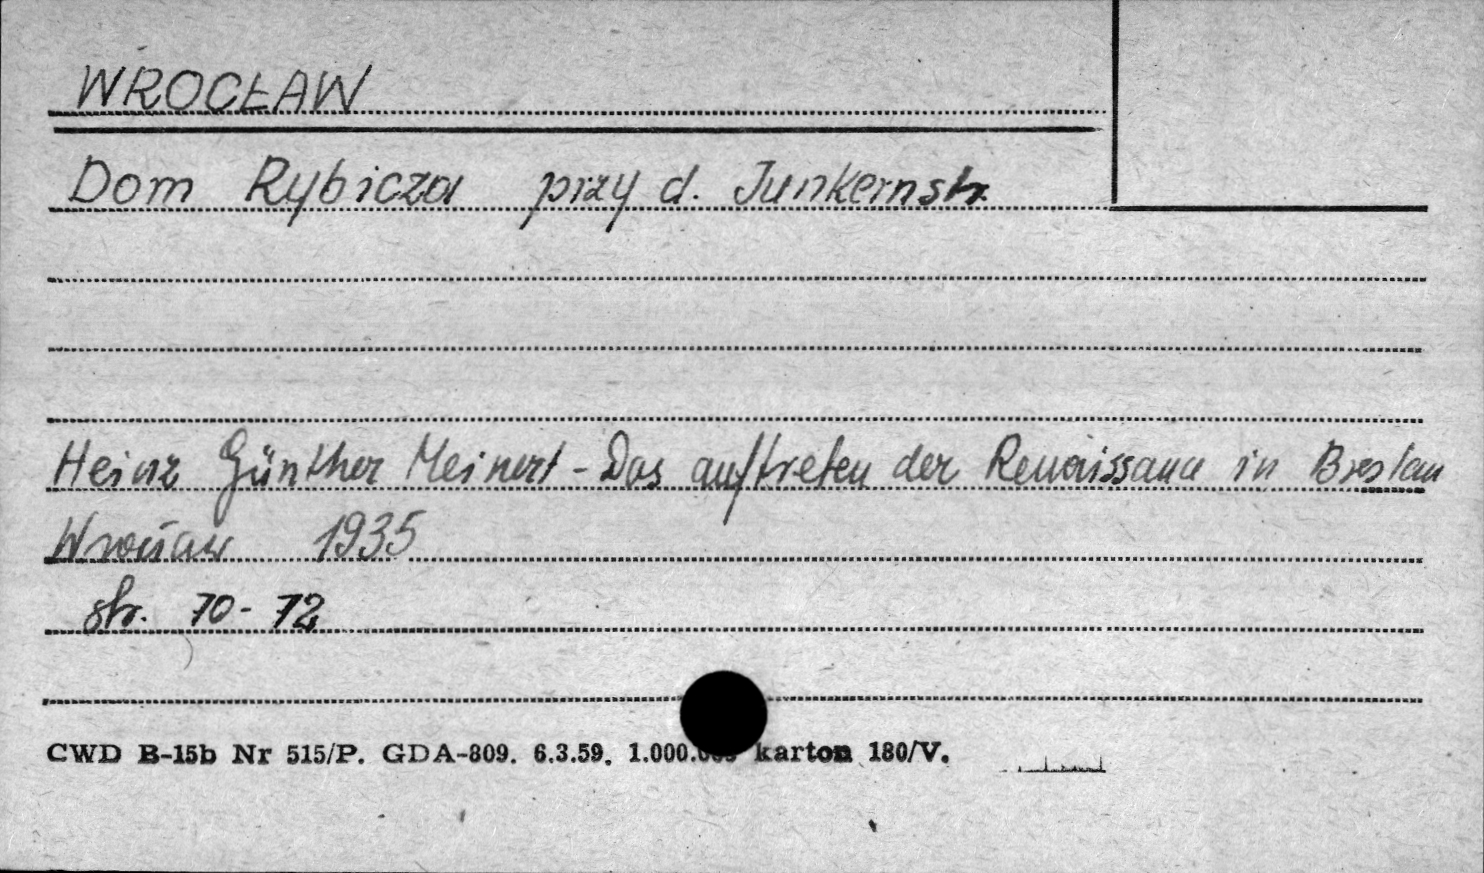 WROCŁAW
Dom Rybicza przy d. Junkernstr.
Heinz Günther Meinert - Das auftreten der Renaissance in Breslau
Wrocław 1935
str. 70-72
CWD B-15b Nr 515/P. GDA-809. 6.3.59. 1.000.000 karton 180/V.